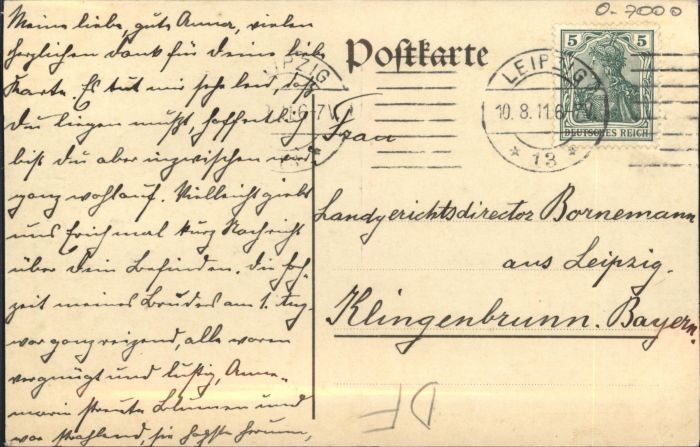 Meine liebe, gute Anna, vielen
herzlichen Dank für Deine liebe
Karte. Es tut mir sehr leid, daß
Du liegen mußt, hoffentlich
bist Du aber inzwischen wieder
ganz wohlauf. Vielleicht giebt
uns Erich mal kurz Nachricht
über Dein Befinden. Die Hoch-
zeit meines Bruders am 1. Aug.
war ganz reizend, alle waren
vergnügt und lustig, Anne-
marie streute Blumen und
war strahlend, sie
0-7000
Postkarte
5 5
DEUTSCHES REICH
LEIPZIG
10. 8. 11. 6
* 13 *
LEIPZIG
Frau
Landgerichtsdirector Bornemann
aus Leipzig.
Klingenbrunn. Bayern.
DF